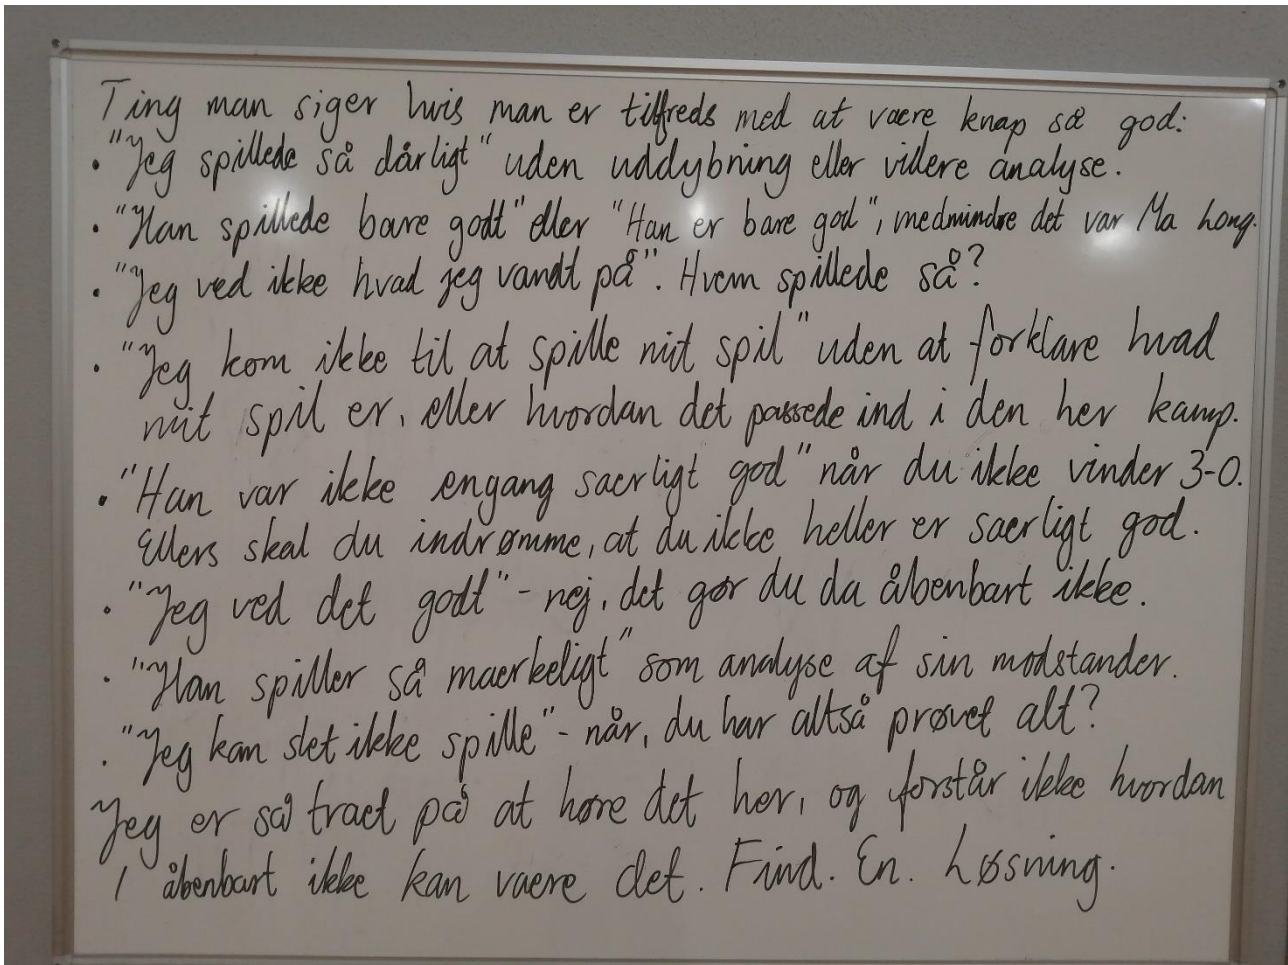 Ting man siger hvis man er tilfreds med at være knap så god:
• "Jeg spillede så dårligt" uden uddybning eller videre analyse.
• "Han spillede bare godt" eller "Han er bare god", medmindre det var Ma Long.
• "Jeg ved ikke hvad jeg vandt på". Hvem spillede så?
• "Jeg kom ikke til at spille mit spil" uden at forklare hvad
mit spil er, eller hvordan det passede ind i den her kamp.
• "Han var ikke engang særligt god" når du ikke vinder 3-0.
Ellers skal du indrømme, at du ikke heller er særligt god.
• "Jeg ved det godt" - nej, det gør du da åbenbart ikke.
• "Han spiller så mærkeligt" som analyse af sin modstander.
• "Jeg kan slet ikke spille" - når, du har altså prøvet alt?
Jeg er så træt på at høre det her, og forstår ikke hvordan
I åbenbart ikke kan være det. Find. En. Løsning.